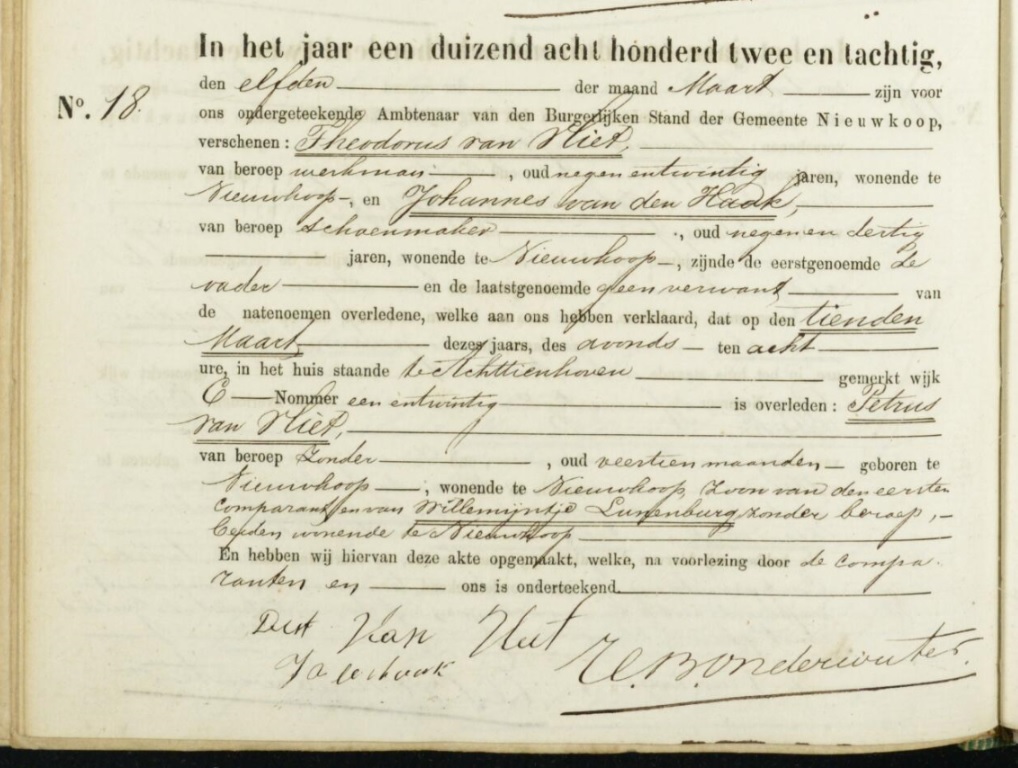 In het jaar een duizend acht honderd twee en tachtig,
den elfden der maand Maart zijn voor
No. 18. ons ondergeteekende Ambtenaar van den Burgerlijken Stand der Gemeente Nieuwkoop,
verschenen: Theodorus van Vliet,
van beroep werkman, oud negen en twintig jaren, wonende te
Nieuwkoop, en Johannes van den Haak,
van beroep schoenmaker, oud negen en dertig
jaren, wonende te Nieuwkoop, zijnde de eerstgenoemde de
vader en de laatstgenoemde geen verwant van
de natenoemen overledene, welke aan ons hebben verklaard, dat op den tienden
Maart dezes jaars, des avonds ten acht
ure, in het huis staande te Achttienhoven gemerkt wijk
C Nommer een en twintig is overleden: Petrus
van Vliet,
van beroep zonder, oud veertien maanden geboren te
Nieuwkoop, wonende te Nieuwkoop, Zoon van den eersten
Comparant en van Willemijntje Lunenburg zonder beroep,
beiden wonende te Nieuwkoop
En hebben wij hiervan deze akte opgemaakt, welke, na voorlezing door de compa-
ranten en ons is onderteekend.
van Vliet